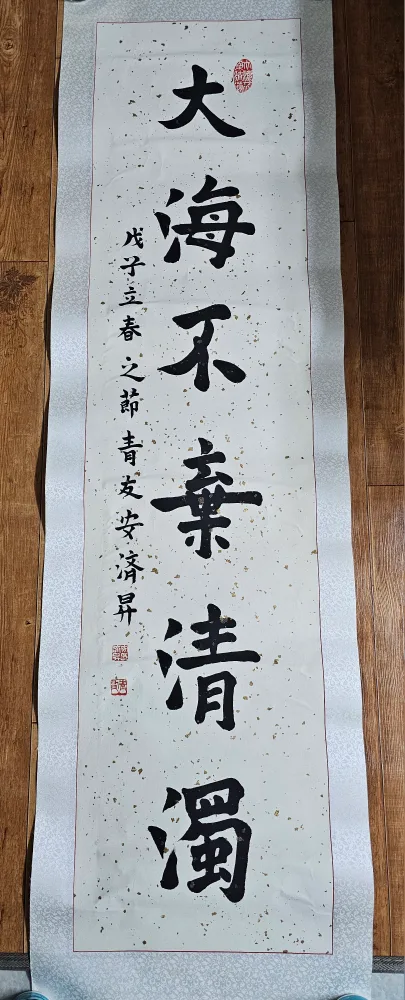 大海不棄清濁
戊子立春之節青友安濟昇